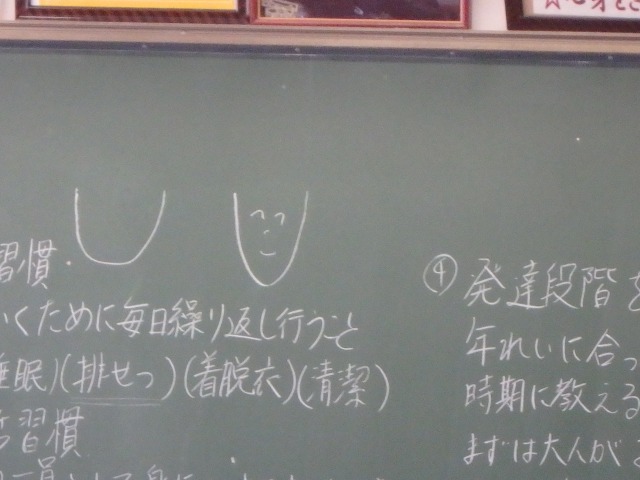 習慣
くために毎日繰り返し行うこと
眠)(排せつ)(着脱衣)(清潔)
習慣
④発達段階を
年れいに合っ
時期に教える
まずは大人が